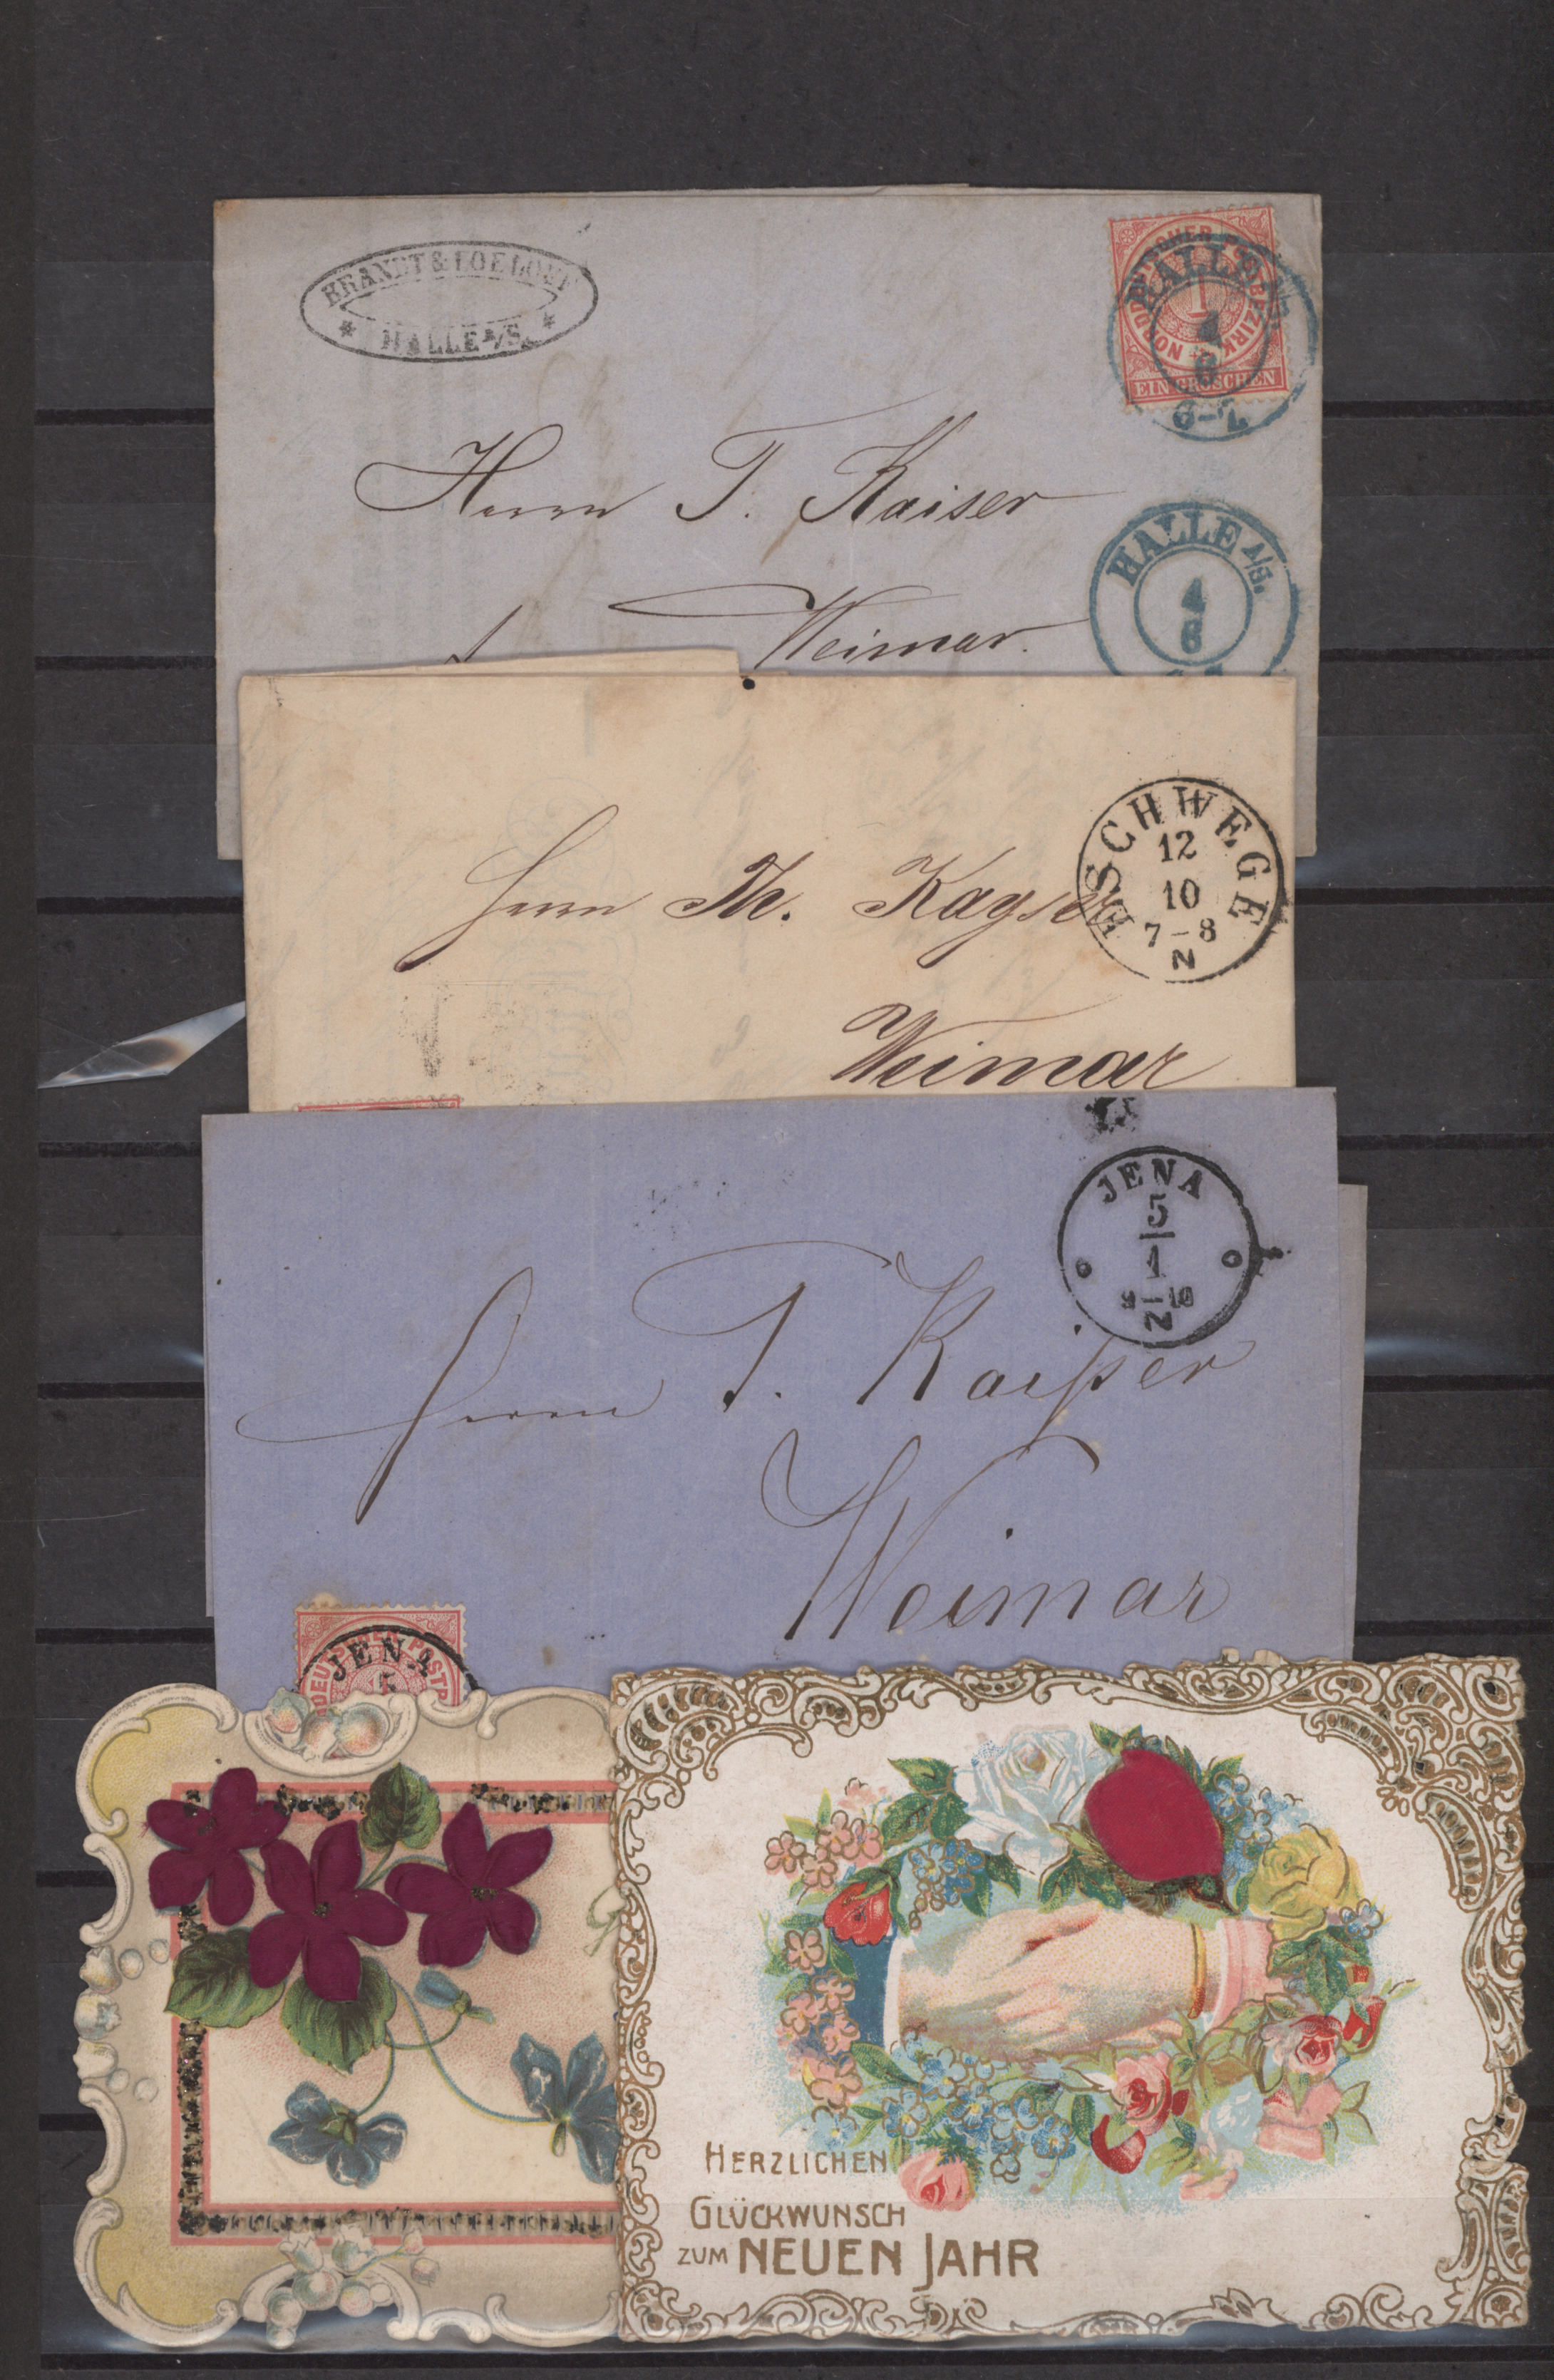 BRANDT & LOELOFF
* HALLE A/S. *
NORDDEUTSCHER POSTBEZIRK
1
EIN GROSCHEN
HALLE A/S.
4
6
6-7
Herrn T. Kaiser
Weimar.
HALLE A/S.
4
6
ESCHWEGE
12
10
7-8
N
Herrn Th. Kayser
Weimar
JENA
5
1
9-10
N
Herrn T. Kaißer
Weimar
JENA
5
HERZLICHEN
GLÜCKWUNSCH
ZUM NEUEN JAHR